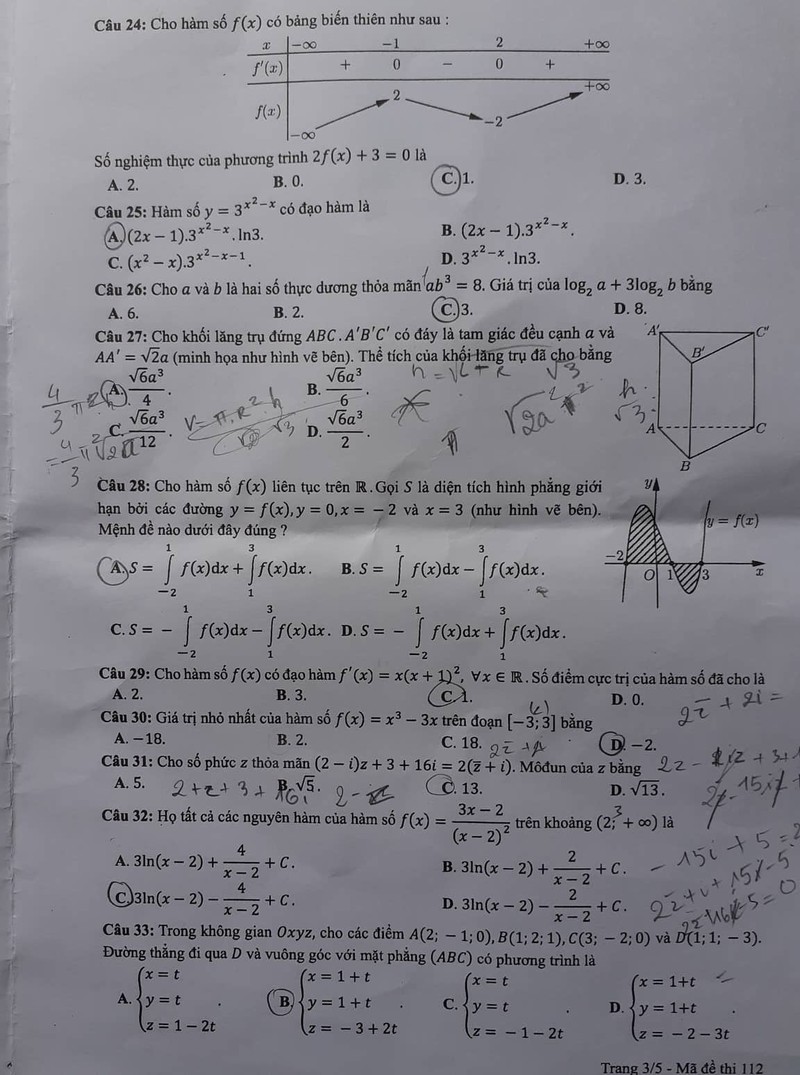 Câu 24: Cho hàm số f(x) có bảng biến thiên như sau :
x −∞ −1 2 +∞
f′(x) + 0 − 0 +
+∞
2
f(x)
−2
−∞
Số nghiệm thực của phương trình 2f(x) + 3 = 0 là
A. 2. B. 0. C. 1. D. 3.
Câu 25: Hàm số y = 3^{x²−x} có đạo hàm là
A. (2x − 1).3^{x²−x}.ln3. B. (2x − 1).3^{x²−x}.
C. (x² − x).3^{x²−x−1}. D. 3^{x²−x}.ln3.
Câu 26: Cho a và b là hai số thực dương thỏa mãn ab³ = 8. Giá trị của log₂ a + 3log₂ b bằng
A. 6. B. 2. C. 3. D. 8.
Câu 27: Cho khối lăng trụ đứng ABC.A′B′C′ có đáy là tam giác đều cạnh a và
AA′ = √2a (minh họa như hình vẽ bên). Thể tích của khối lăng trụ đã cho bằng
A. √6a³/4. B. √6a³/6.
C. √6a³/12. D. √6a³/2.
A′ C′
B′
A C
B
Câu 28: Cho hàm số f(x) liên tục trên ℝ.Gọi S là diện tích hình phẳng giới
hạn bởi các đường y = f(x), y = 0, x = − 2 và x = 3 (như hình vẽ bên).
Mệnh đề nào dưới đây đúng ?
y
y = f(x)
−2 O 1 3 x
A. S = ∫_{−2}^{1} f(x)dx + ∫_{1}^{3} f(x)dx. B. S = ∫_{−2}^{1} f(x)dx − ∫_{1}^{3} f(x)dx.
C. S = − ∫_{−2}^{1} f(x)dx − ∫_{1}^{3} f(x)dx. D. S = − ∫_{−2}^{1} f(x)dx + ∫_{1}^{3} f(x)dx.
Câu 29: Cho hàm số f(x) có đạo hàm f′(x) = x(x + 1)², ∀x ∈ ℝ. Số điểm cực trị của hàm số đã cho là
A. 2. B. 3. C. 1. D. 0.
Câu 30: Giá trị nhỏ nhất của hàm số f(x) = x³ − 3x trên đoạn [−3; 3] bằng
A. −18. B. 2. C. 18. D. −2.
Câu 31: Cho số phức z thỏa mãn (2 − i)z + 3 + 16i = 2(z̄ + i). Môđun của z bằng
A. 5. B. √5. C. 13. D. √13.
Câu 32: Họ tất cả các nguyên hàm của hàm số f(x) = (3x − 2)/(x − 2)² trên khoảng (2; + ∞) là
A. 3ln(x − 2) + 4/(x − 2) + C. B. 3ln(x − 2) + 2/(x − 2) + C.
C. 3ln(x − 2) − 4/(x − 2) + C. D. 3ln(x − 2) − 2/(x − 2) + C.
Câu 33: Trong không gian Oxyz, cho các điểm A(2; − 1; 0), B(1; 2; 1), C(3; − 2; 0) và D(1; 1; − 3).
Đường thẳng đi qua D và vuông góc với mặt phẳng (ABC) có phương trình là
A. {x = t B. {x = 1 + t C. {x = t D. {x = 1+t
y = t . y = 1 + t . y = t . y = 1+t .
z = 1 − 2t z = − 3 + 2t z = − 1 − 2t z = − 2 − 3t
Trang 3/5 - Mã đề thi 112